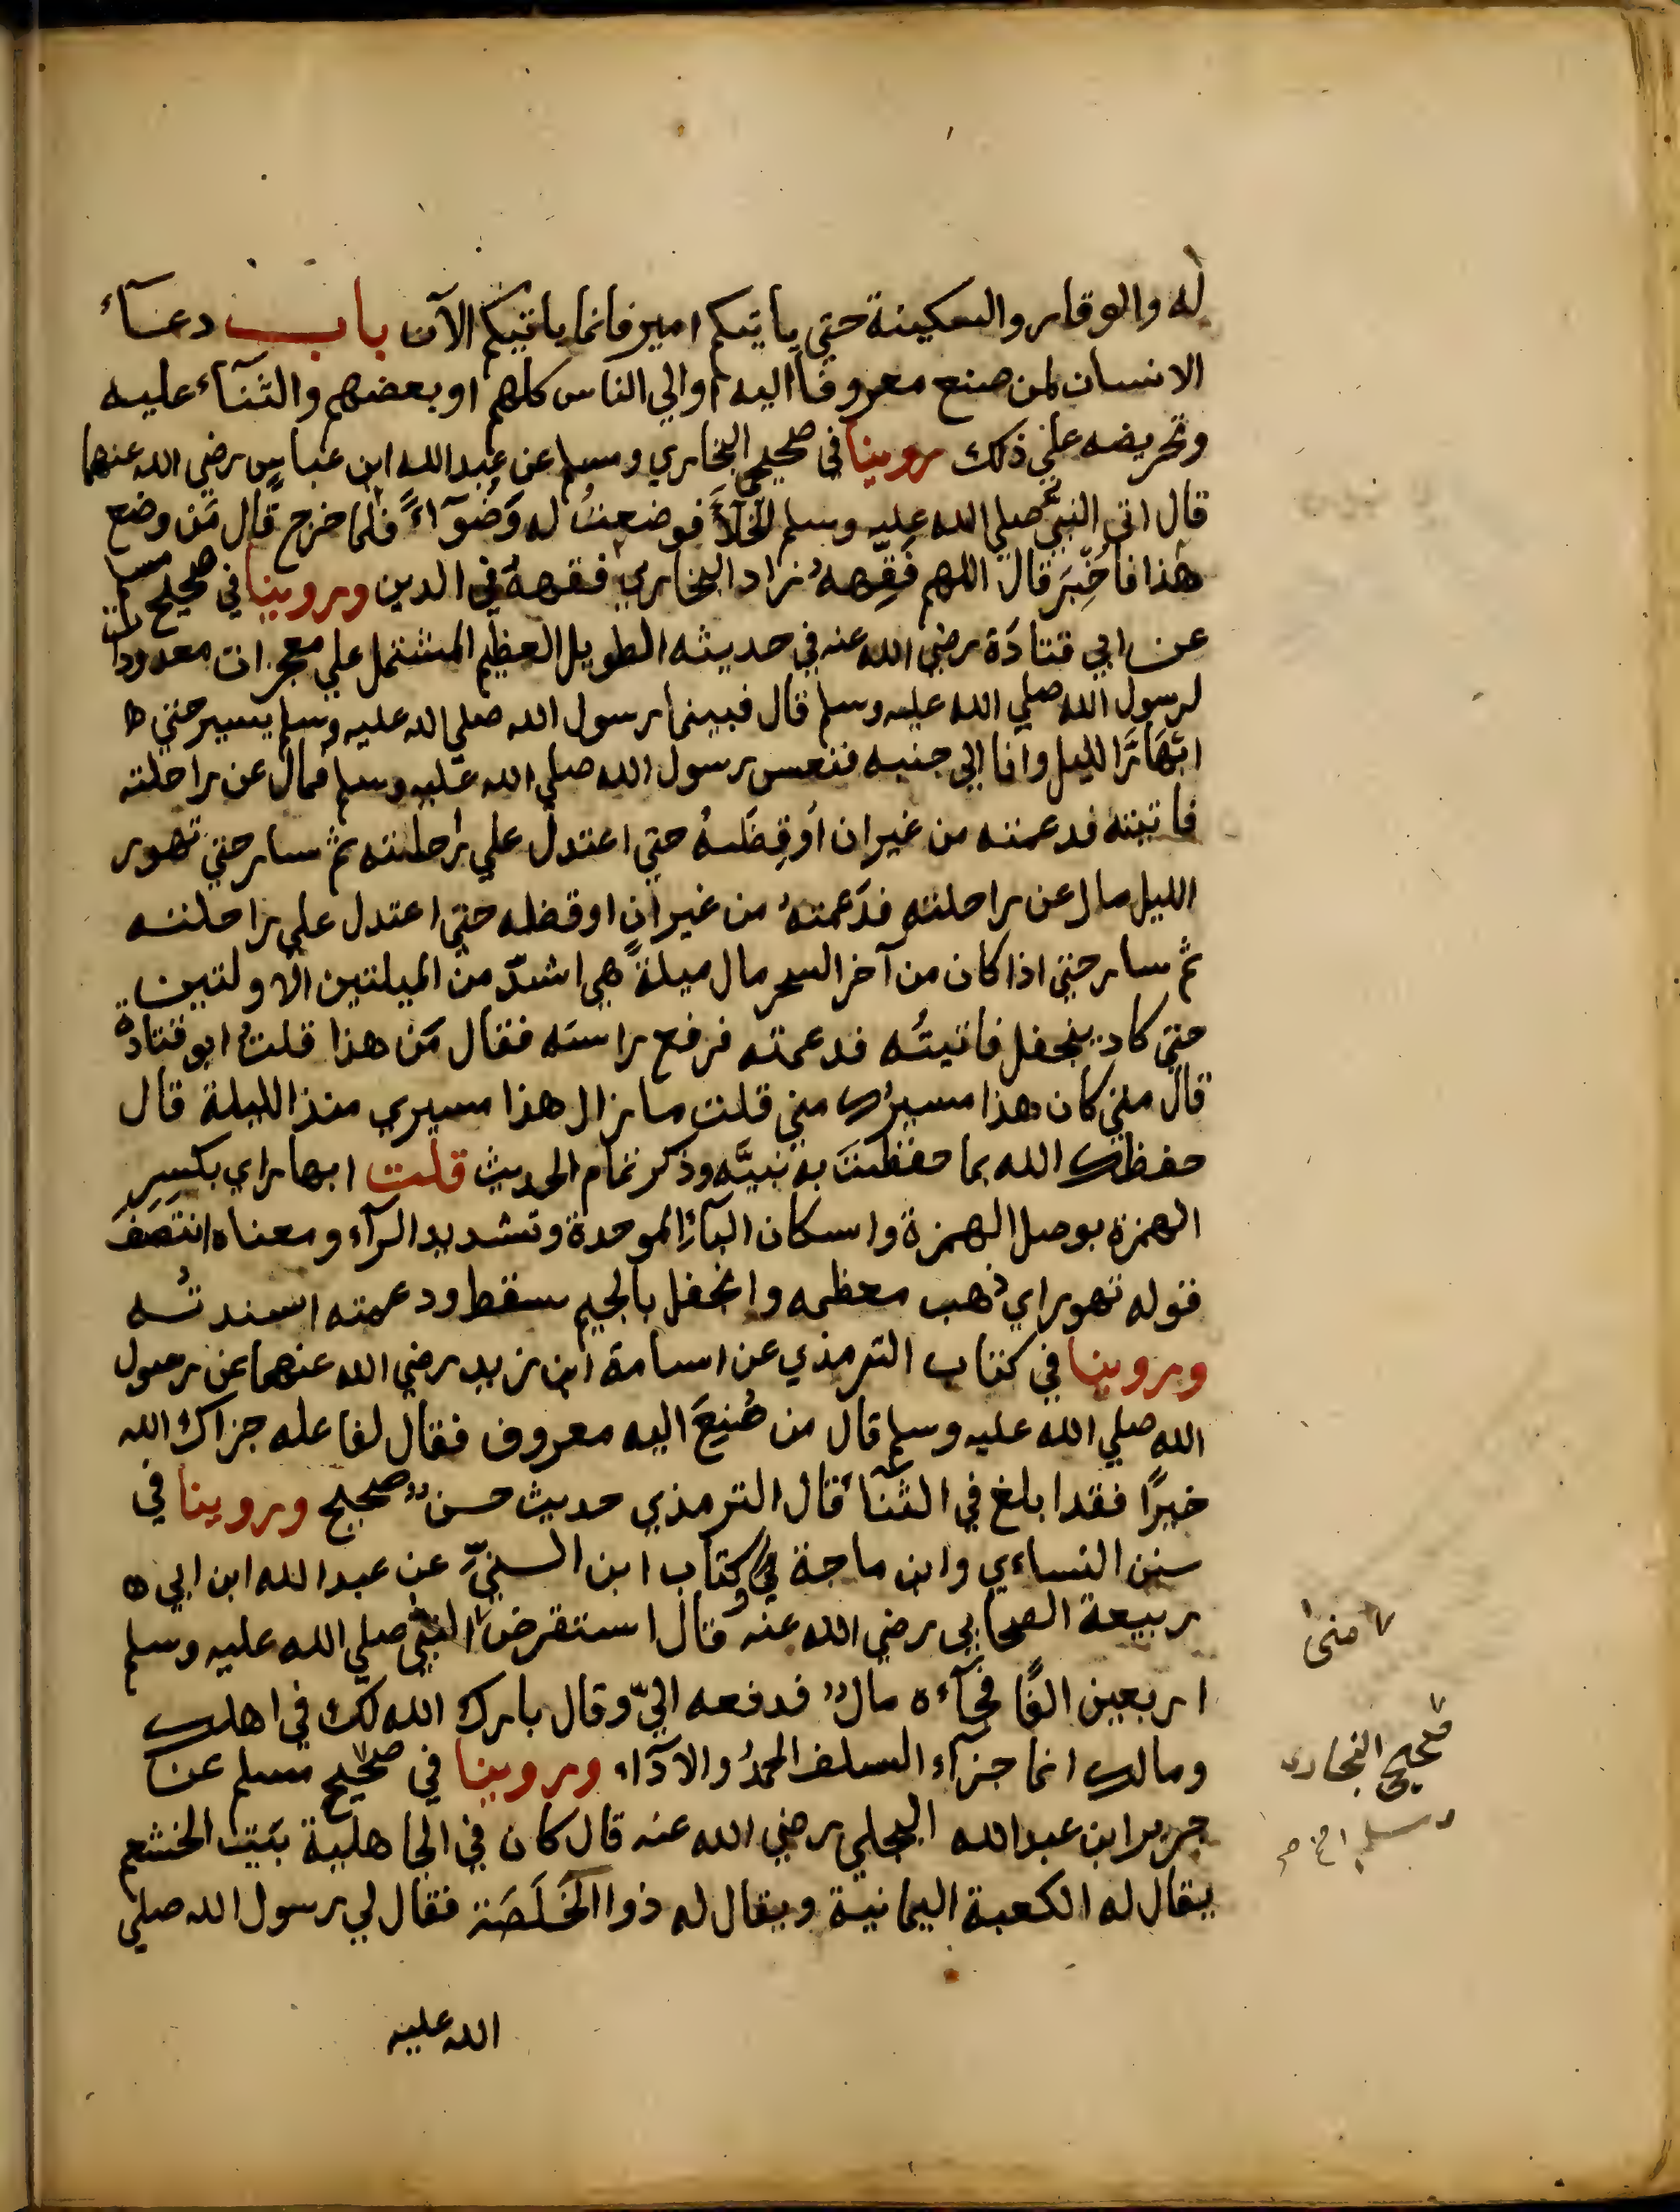 له والوقار والسكينة حتي ياتيكم امير فانما ياتيكم الآن باب دعآء
الانسان لمن صنع معروفا اليه او الي الناس كلهم او بعضهم والثنآء عليه
وتحريضه علي ذلك روينا في صحيحي البخاري ومسلم عن عبد الله ابن عباس رضي الله عنهما
قال اتى النبيُّ صلي الله عليه وسلم الخلآَ فوضعتُ له وَضُوآءً فلما خرج قال مَن وضع
هذا فاُخْبِرَ قال اللهم فَقِّههُ زاد البخاري فقههُ في الدين وروينا في صحيح مسلم
عن ابي قتادَة رضي الله عنه في حديثه الطويل العظيم المشتمل علي معجزات معدودات
لرسول الله صلي الله عليه وسلم قال فبينما رسول الله صلي الله عليه وسلم يسير حتي
ابْهَارَّ الليل وانا الي جنبه فنعس رسول الله صلي الله عليه وسلم فمال عن راحلته
فاتيته فدعمته من غير ان اُوقِظَهُ حتي اعتدل علي راحلته ثم سار حتي تهور
الليل مال عن راحلته فدَعمتهُ من غير ان اوقضه حتي اعتدل علي راحلته
ثم سار حتي اذا كان من آخر السحر مال ميلةً هي اشدّ من الميلتين الاولتين
حتي كاد ينجفل فاتيتُه فدعمته فرفع راسَه فقال مَن هذا قلتُ ابو قتادة
قال متي كان هذا مسيرُك مني قلت ما زال هذا مسيري منذ الليلة قال
حفظك الله بما حفظتَ به نبيَّه وذكر تمام الحديث قلت ابهار اي بكسرِ
الهمزة بوصل الهمزة واسكان البآءِ الموحدة وتشديد الرآء ومعناه انتَصَفَ
قوله تهور اي ذهب معظمه وانجفل بالجيم سقط ودعمته اسندتُه
وروينا في كتاب الترمذي عن اسامة ابن زيد رضي الله عنهما عن رسول
الله صلي الله عليه وسلم قال من صُنِعَ اليه معروف فقال لفاعله جزاك الله
خيرًا فقد ابلغ في الثنآ قال الترمذي حديث حسن صحيح وروينا في
سنن النساءي وابن ماجة وكتاب ابن السنيّ عن عبد الله ابن ابي
ربيعة الصحابي رضي الله عنه قال استقرض النبيُّ صلي الله عليه وسلم
اربعين الفًا فجآءه مال فدفعه اليّ وقال بارك الله لك في اهلك
ومالك انما جزآء السلف الحمدُ والادآء وروينا في صحيح مسلم عن
جرير ابن عبد الله البجلي رضي الله عنه قال كان في الجاهلية بيَت الخثعم
يقال له الكعبة اليمانية ويقال له ذوا الخَلَصَة فقال لي رسول الله صلي
الله عليه
منى
صحيحي البخاري
ومسلم